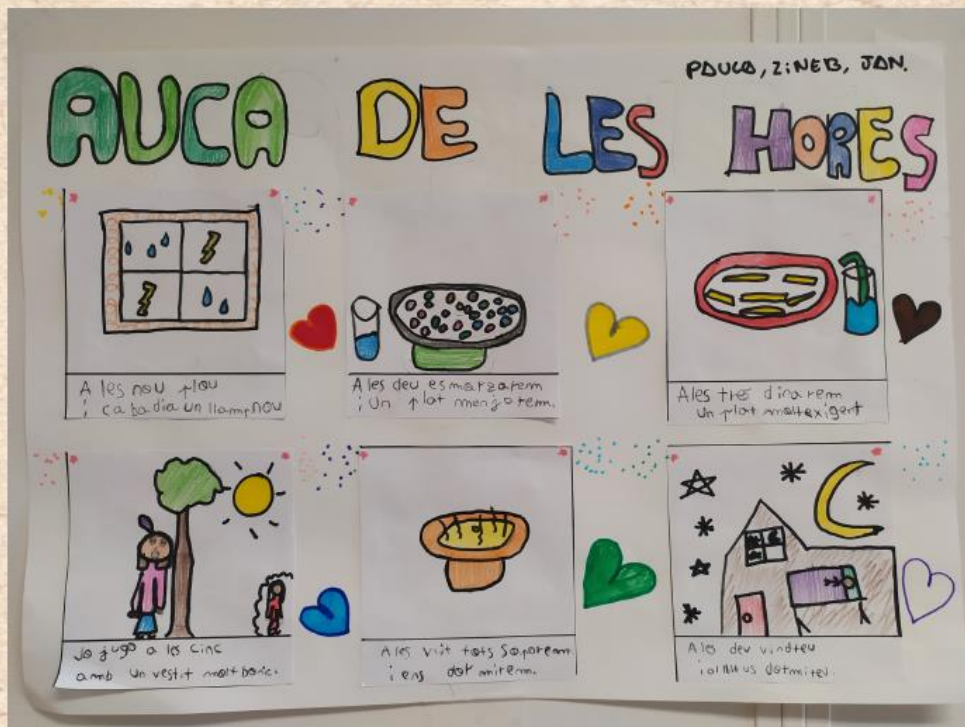 PAULA, ZINEB, JAN.
AUCA DE LES HORES
A les nou plou
i
un llamp nou
A les deu esmorzarem
i Un plat menjarem.
A les tres dinarem
un plat molt exigent
Jo jugo a les cinc
amb un vestit molt bonic.
A les vuit tots Soparem
i ens dormirem.
A les deu vindreu
i al llit us dormireu.